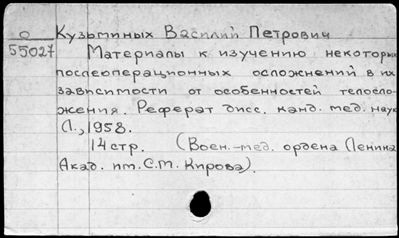 О Кузьминых Василий Петрович
55027 Материалы к изучению некоторых
послеоперационных осложнений в их
зависимости от особенностей телосло-
жения. Реферат дисс. канд. мед. наук
Л., 1958.
14 стр. (Воен.-мед. ордена Ленина
Акад. им. С.М. Кирова).